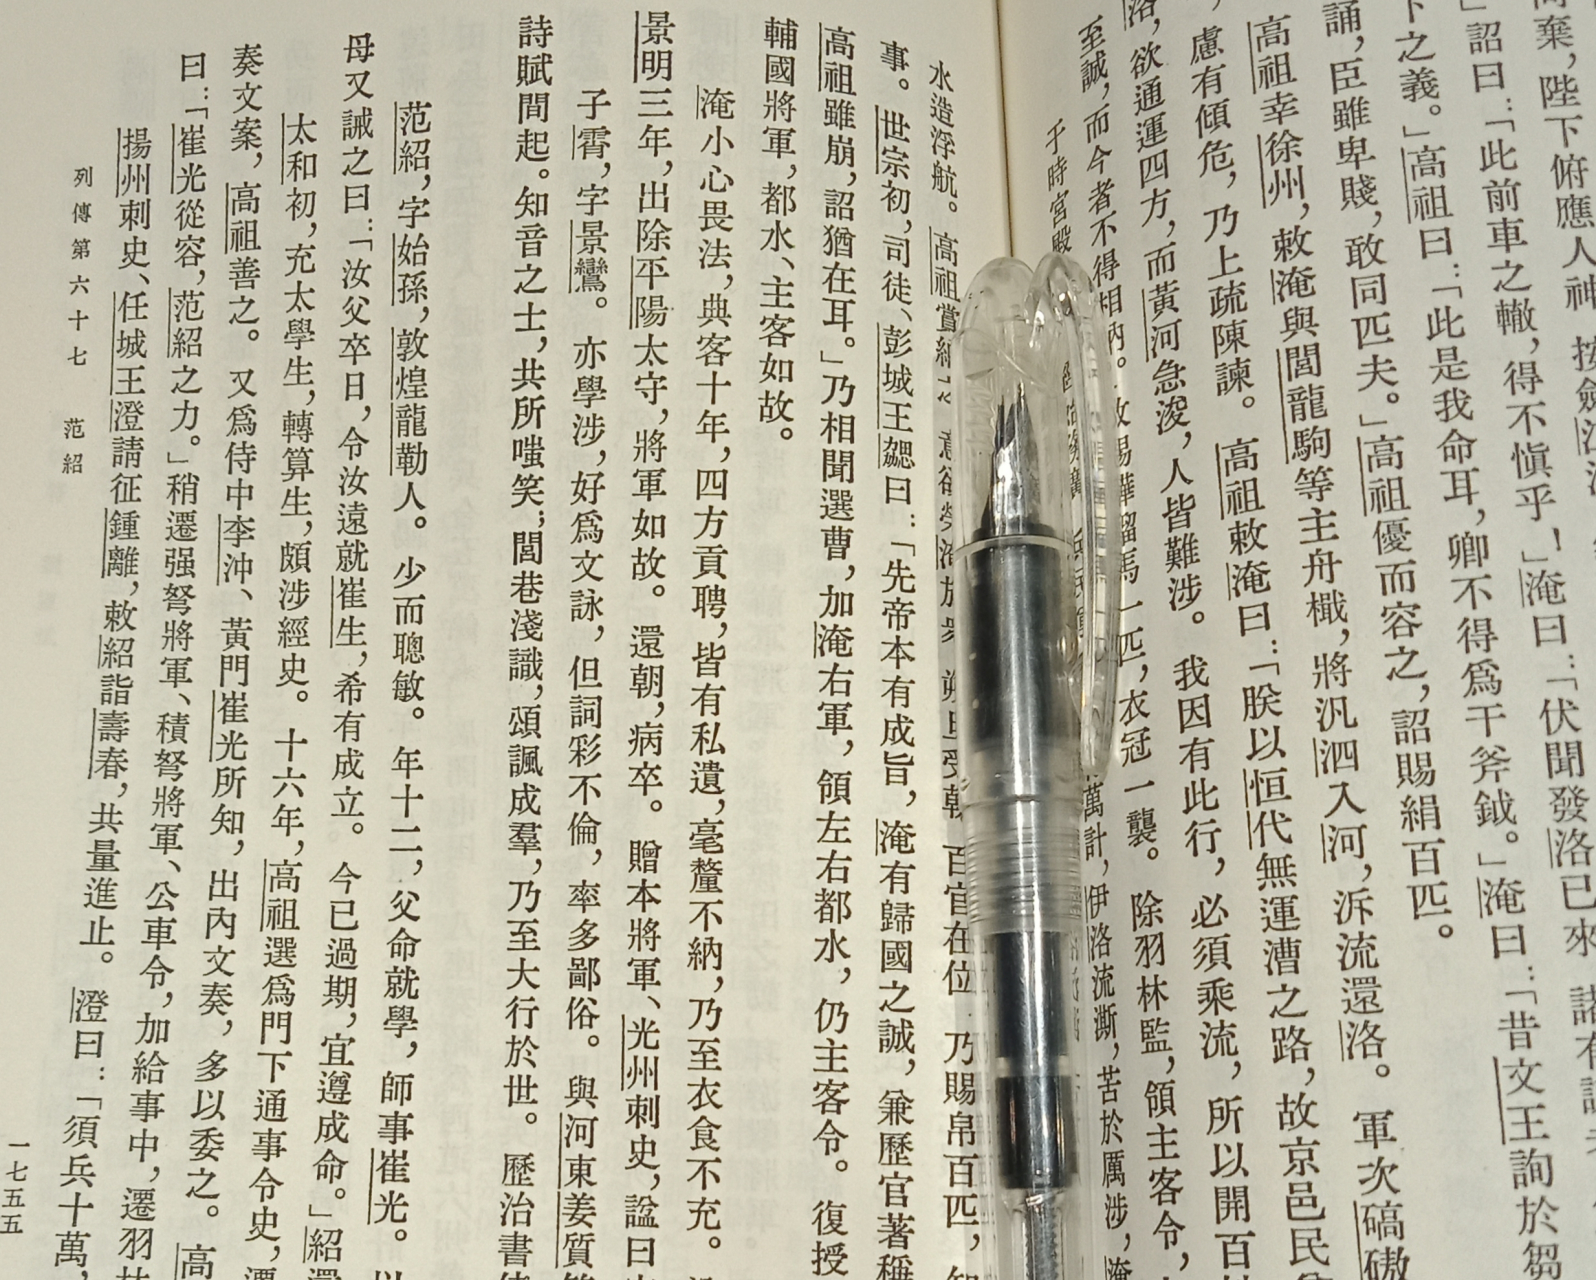 尚棄，陛下俯應人神
」詔曰：「此前車之轍，得不慎乎！」淹曰：「伏聞發洛已來，諸有
下之義。」高祖曰：「此是我命耳，卿不得爲干斧鉞。」淹曰：「昔文王詢於芻
誦，臣雖卑賤，敢同匹夫。」高祖優而容之，詔賜絹百匹。
高祖幸徐州，敕淹與閭龍駒等主舟檝，將汎泗入河，泝流還洛。軍次碻磝
，慮有傾危，乃上疏陳諫。高祖敕淹曰：「朕以恒代無運漕之路，故京邑民
洛，欲通運四方，而黃河急浚，人皆難涉。我因有此行，必須乘流，所以開百
至誠，而今者不得相納。」故賜驊騮馬一匹，衣冠一襲。除羽林監，領主客令，
于時宮殿
萬計，伊洛流澌，苦於厲涉，淹
水造浮航。高祖賞納之
百官在位，乃賜帛百匹，
事。世宗初，司徒、彭城王勰曰：「先帝本有成旨，淹有歸國之誠，兼歷官著稱
高祖雖崩，詔猶在耳。」乃相聞選曹，加淹右軍，領左右都水，仍主客令。復授
輔國將軍，都水、主客如故。
淹小心畏法，典客十年，四方貢聘，皆有私遺，毫釐不納，乃至衣食不充。
景明三年，出除平陽太守，將軍如故。還朝，病卒。贈本將軍、光州刺史，諡曰
子霄，字景鸞。亦學涉，好爲文詠，但詞彩不倫，率多鄙俗。與河東姜質
詩賦間起。知音之士，共所嗤笑；閭巷淺識，頌諷成羣，乃至大行於世。歷治書
范紹，字始孫，敦煌龍勒人。少而聰敏。年十二，父命就學，師事崔光。以
母又誡之曰：「汝父卒日，令汝遠就崔生，希有成立。今已過期，宜遵成命。」紹還
太和初，充太學生，轉算生，頗涉經史。十六年，高祖選爲門下通事令史，遷
奏文案，高祖善之。又爲侍中李沖、黃門崔光所知，出內文奏，多以委之。高
曰：「崔光從容，范紹之力。」稍遷强弩將軍、積弩將軍、公車令，加給事中，遷羽林
揚州刺史、任城王澄請征鍾離，敕紹詣壽春，共量進止。澄曰：「須兵十萬，
列傳第六十七　范紹
一七五五